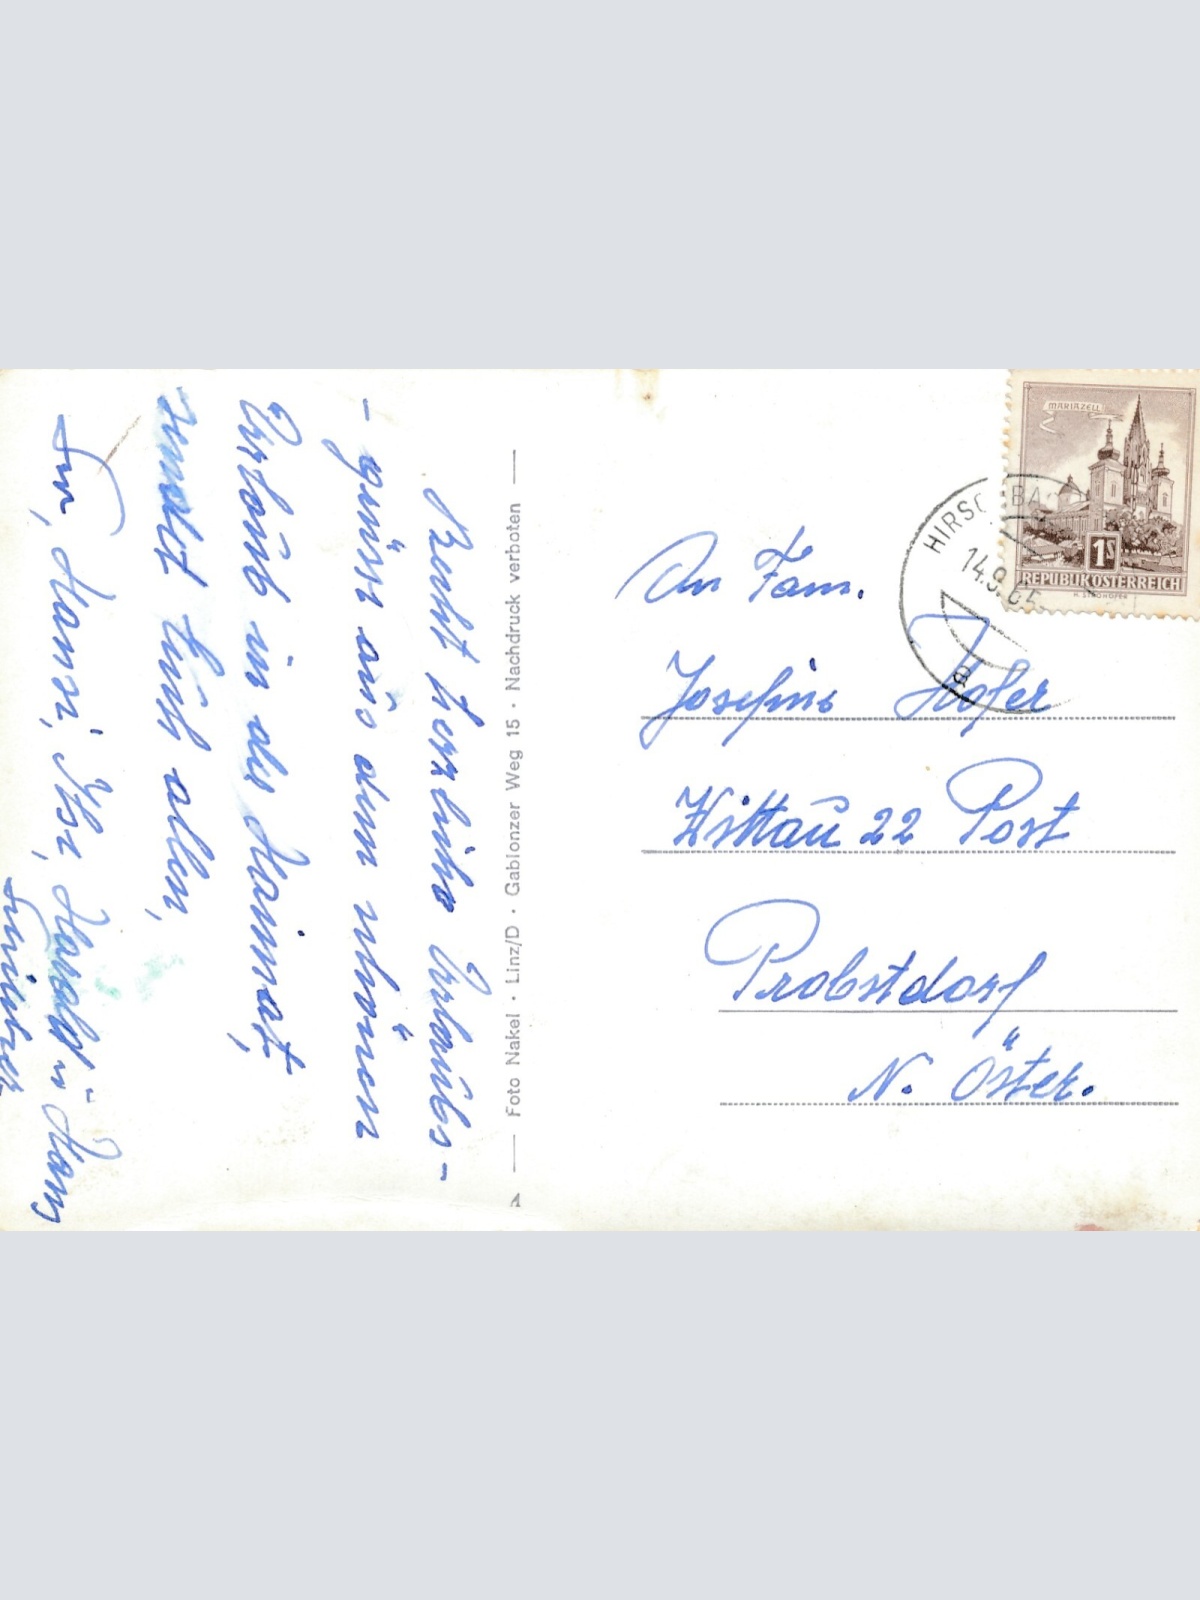 Recht herzliche Urlaubs-
- grüsse aus dem schönen
Urlaub in der Heimat,
sendet Euch allen,
Fam, Hansi, Ilse, Harald u Hans
Foto Nakel · Linz/D · Gablonzer Weg 15 · Nachdruck verboten
MARIAZELL
1S
REPUBLIK ÖSTERREICH
14.9.65
a
An Fam.
Josefine Hofer
Wittau 22 Post
Probstdorf
N. Öster.